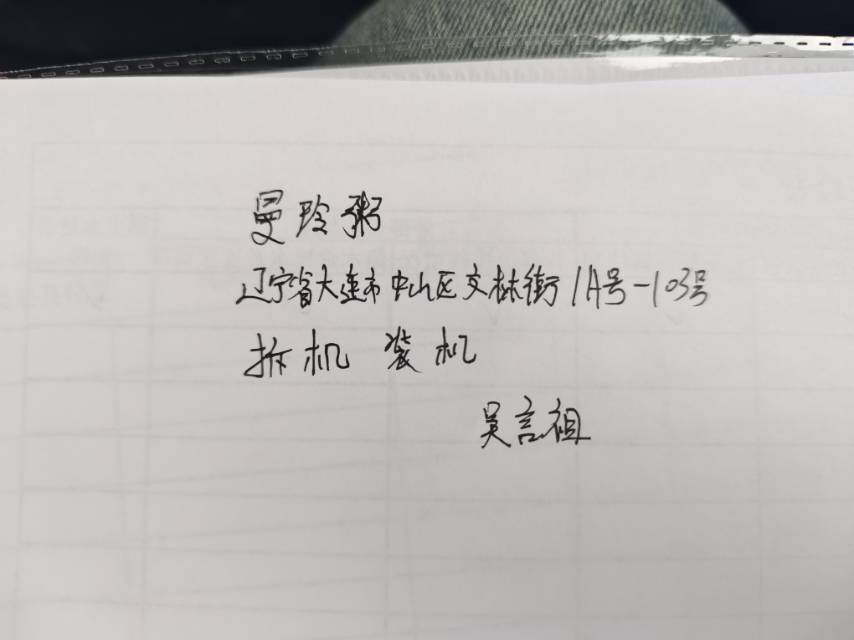 曼玲粥
辽宁省大连市中山区文林街1A号-103号
拆机 装机
吴言祖